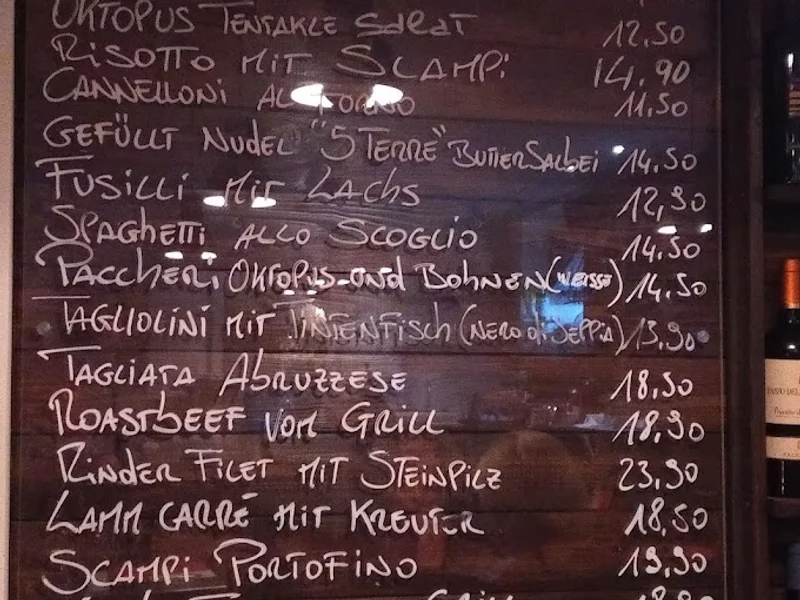 OKTOPUS TENTAKLE SALAT 12,50
RISOTTO MIT SCAMPI 14.90
CANNELLONI AL FORNO 11,50
GEFÜLLT NUDEL "5 TERRE" BUTTER SALBEI 14.50
FUSILLI MIT LACHS 12,90
SPAGHETTI ALLO SCOGLIO 14.50
PACCHERI OKTOPUS UND BOHNEN (WEISSE) 14.50
TAGLIOLINI MIT TINTENFISCH (NERO di SEPPIA) 13,90
TAGLIATA ABRUZZESE 18,50
ROASTBEEF VOM GRILL 18,90
RINDER FILET MIT STEINPILZ 23,90
LAMM CARRÉ MIT KREUTER 18,50
SCAMPI PORTOFINO 19,90